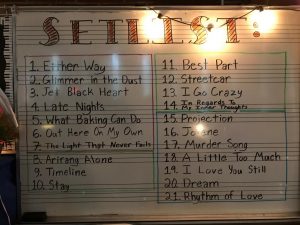 SETLIST:
1. Either Way
2. Glimmer in the Dust
3. Jet Black Heart
4. Late Nights
5. What Baking Can Do
6. Out Here On My Own
7. The Light That Never Fails
8. Arirang Alone
9. Timeline
10. Stay
11. Best Part
12. Streetcar
13. I Go Crazy
14. In Regards To
My Inner Thoughts
15. Projection
16. Jolene
17. Murder Song
18. A Little Too Much
19. I Love You Still
20. Dream
21. Rhythm of Love